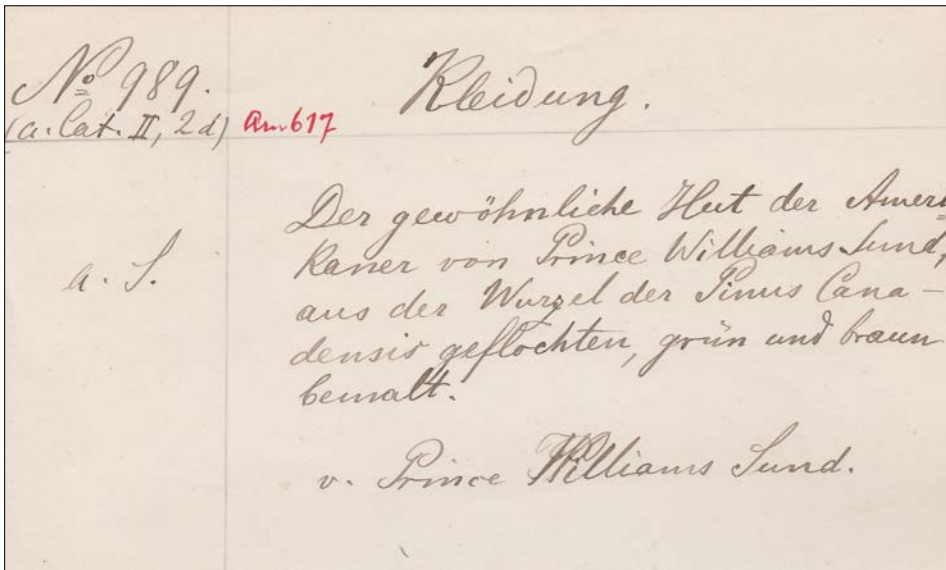 No 989.
Kleidung.
(a. Cat. II, 2 d) Am 617
Der gewöhnliche Hut der Ameri=
kaner von Prince Williams Sund,
a. S.
aus der Wurzel der Pinus Cana-
densis geflochten, grün und braun
bemalt.
v. Prince Williams Sund.